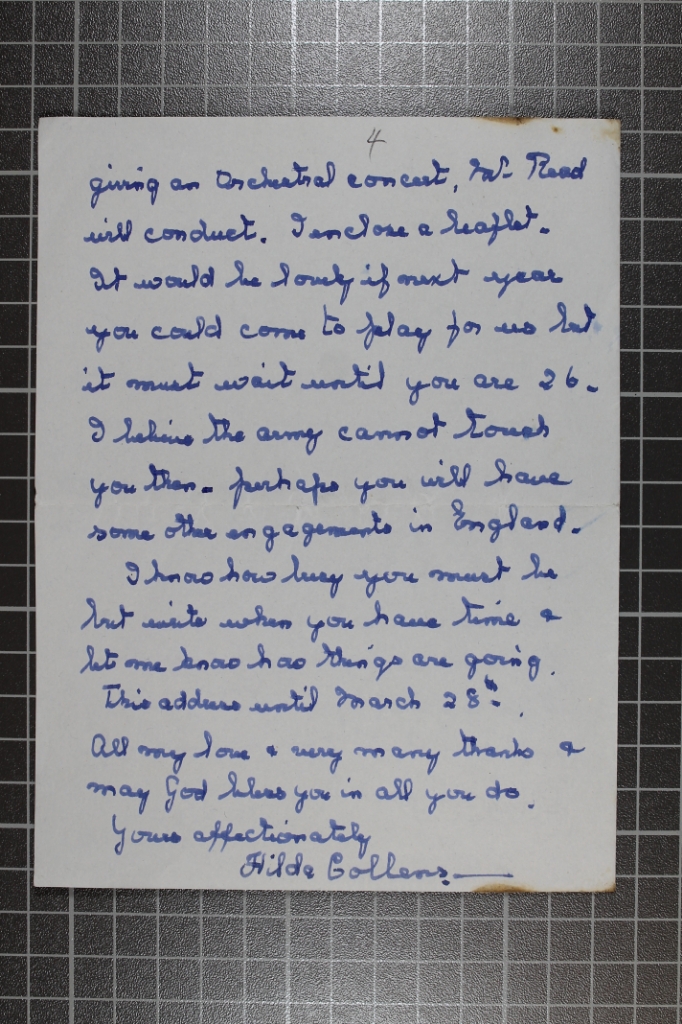 4
giving an Orchestral concert, Mr. Read
will conduct. I enclose a leaflet.
It would be lovely if next year
you could come to play for us but
it must wait until you are 26.
I believe the army cannot touch
you then. perhaps you will have
some other engagements in England.
I know how busy you must be
but write when you have time &
let me know how things are going.
This address until March 28th.
All my love & very many thanks &
may God bless you in all you do.
Yours affectionately
Hilda Collens.